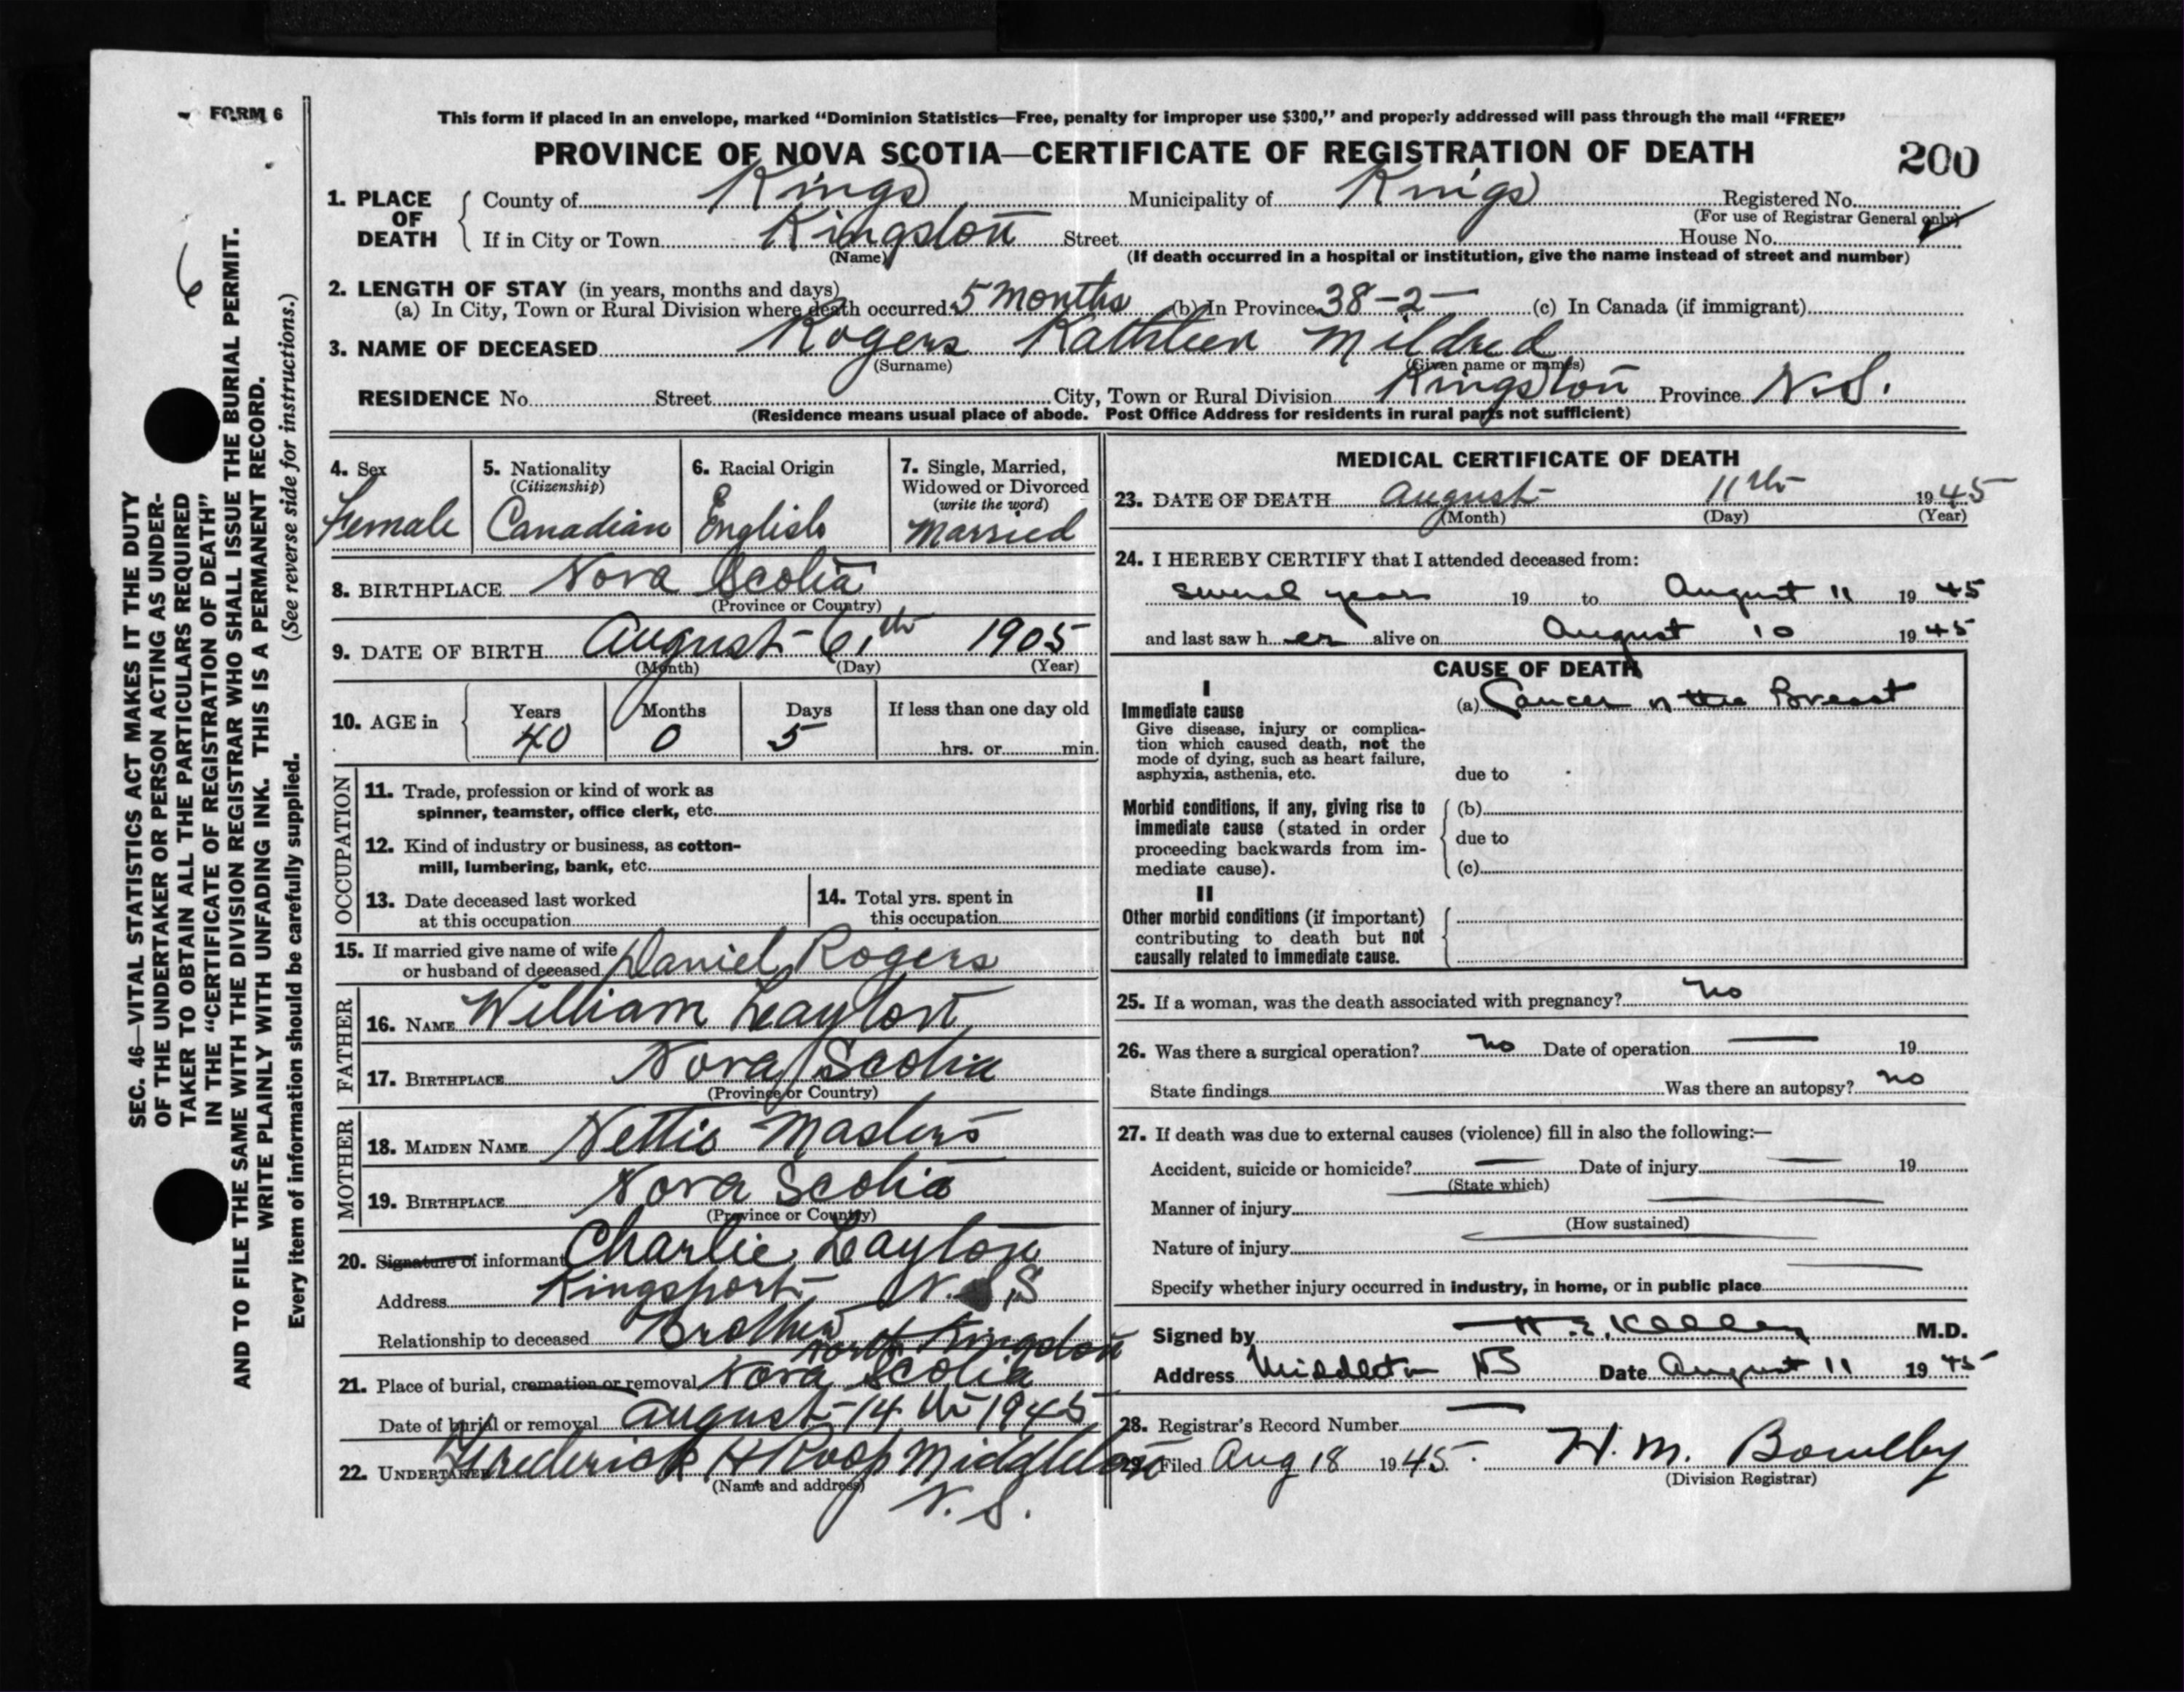 FORM 6
This form if placed in an envelope, marked “Dominion Statistics—Free, penalty for improper use $300,” and properly addressed will pass through the mail “FREE”
PROVINCE OF NOVA SCOTIA—CERTIFICATE OF REGISTRATION OF DEATH
200
1. PLACE OF DEATH
County of Kings Municipality of Kings Registered No.
(For use of Registrar General only)
If in City or Town Kingston Street House No.
(Name) (If death occurred in a hospital or institution, give the name instead of street and number)
2. LENGTH OF STAY (in years, months and days)
(a) In City, Town or Rural Division where death occurred 5 months (b) In Province 38-2- (c) In Canada (if immigrant)
3. NAME OF DECEASED Rogers Kathleen Mildred
(Surname) (Given name or names)
RESIDENCE No. Street City, Town or Rural Division Kingston Province N.S.
(Residence means usual place of abode. Post Office Address for residents in rural parts not sufficient)
4. Sex
Female
5. Nationality
(Citizenship)
Canadian
6. Racial Origin
English
7. Single, Married,
Widowed or Divorced
(write the word)
Married
8. BIRTHPLACE Nova Scotia
(Province or Country)
9. DATE OF BIRTH August 6th 1905
(Month) (Day) (Year)
10. AGE in
Years Months Days If less than one day old
40 0 5 hrs. or min.
OCCUPATION
11. Trade, profession or kind of work as
spinner, teamster, office clerk, etc.
12. Kind of industry or business, as cotton-
mill, lumbering, bank, etc.
13. Date deceased last worked
at this occupation
14. Total yrs. spent in
this occupation
15. If married give name of wife
or husband of deceased Daniel Rogers
FATHER
16. NAME William Layton
17. BIRTHPLACE Nova Scotia
(Province or Country)
MOTHER
18. MAIDEN NAME Nettie Masters
19. BIRTHPLACE Nova Scotia
(Province or Country)
20. Signature of informant Charlie Layton
Address Kingsport, N.S
Relationship to deceased Brother
North Kingston
21. Place of burial, cremation or removal Nova Scotia
Date of burial or removal August 14th 1945
22. UNDERTAKER Frederick H Roop Middleton
(Name and address)
N.S.
MEDICAL CERTIFICATE OF DEATH
23. DATE OF DEATH August 11th 1945
(Month) (Day) (Year)
24. I HEREBY CERTIFY that I attended deceased from:
several years 19 to August 11 1945
and last saw her alive on August 10 1945
CAUSE OF DEATH
I
Immediate cause
Give disease, injury or complica-
tion which caused death, not the
mode of dying, such as heart failure,
asphyxia, asthenia, etc.
(a) Cancer of the Breast
due to
Morbid conditions, if any, giving rise to
immediate cause (stated in order
proceeding backwards from im-
mediate cause).
(b)
due to
(c)
II
Other morbid conditions (if important)
contributing to death but not
causally related to immediate cause.
25. If a woman, was the death associated with pregnancy? no
26. Was there a surgical operation? no Date of operation — 19
State findings Was there an autopsy? no
27. If death was due to external causes (violence) fill in also the following:—
Accident, suicide or homicide? — Date of injury — 19
(State which)
Manner of injury
(How sustained)
Nature of injury
Specify whether injury occurred in industry, in home, or in public place
Signed by H. E. Kelley M.D.
Address Middleton NS Date August 11 1945
28. Registrar's Record Number
29. Filed Aug 18 1945. H. M. Bowlby
(Division Registrar)
6
SEC. 46—VITAL STATISTICS ACT MAKES IT THE DUTY
OF THE UNDERTAKER OR PERSON ACTING AS UNDER-
TAKER TO OBTAIN ALL THE PARTICULARS REQUIRED
IN THE “CERTIFICATE OF REGISTRATION OF DEATH”
AND TO FILE THE SAME WITH THE DIVISION REGISTRAR WHO SHALL ISSUE THE BURIAL PERMIT.
WRITE PLAINLY WITH UNFADING INK. THIS IS A PERMANENT RECORD.
Every item of information should be carefully supplied. (See reverse side for instructions.)